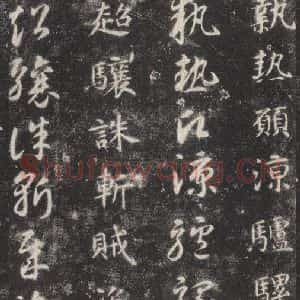 執熱願涼驢騾
執熱願涼驢騾
超驤誅斬賊
超驤誅斬賊
Shufawang.Cn